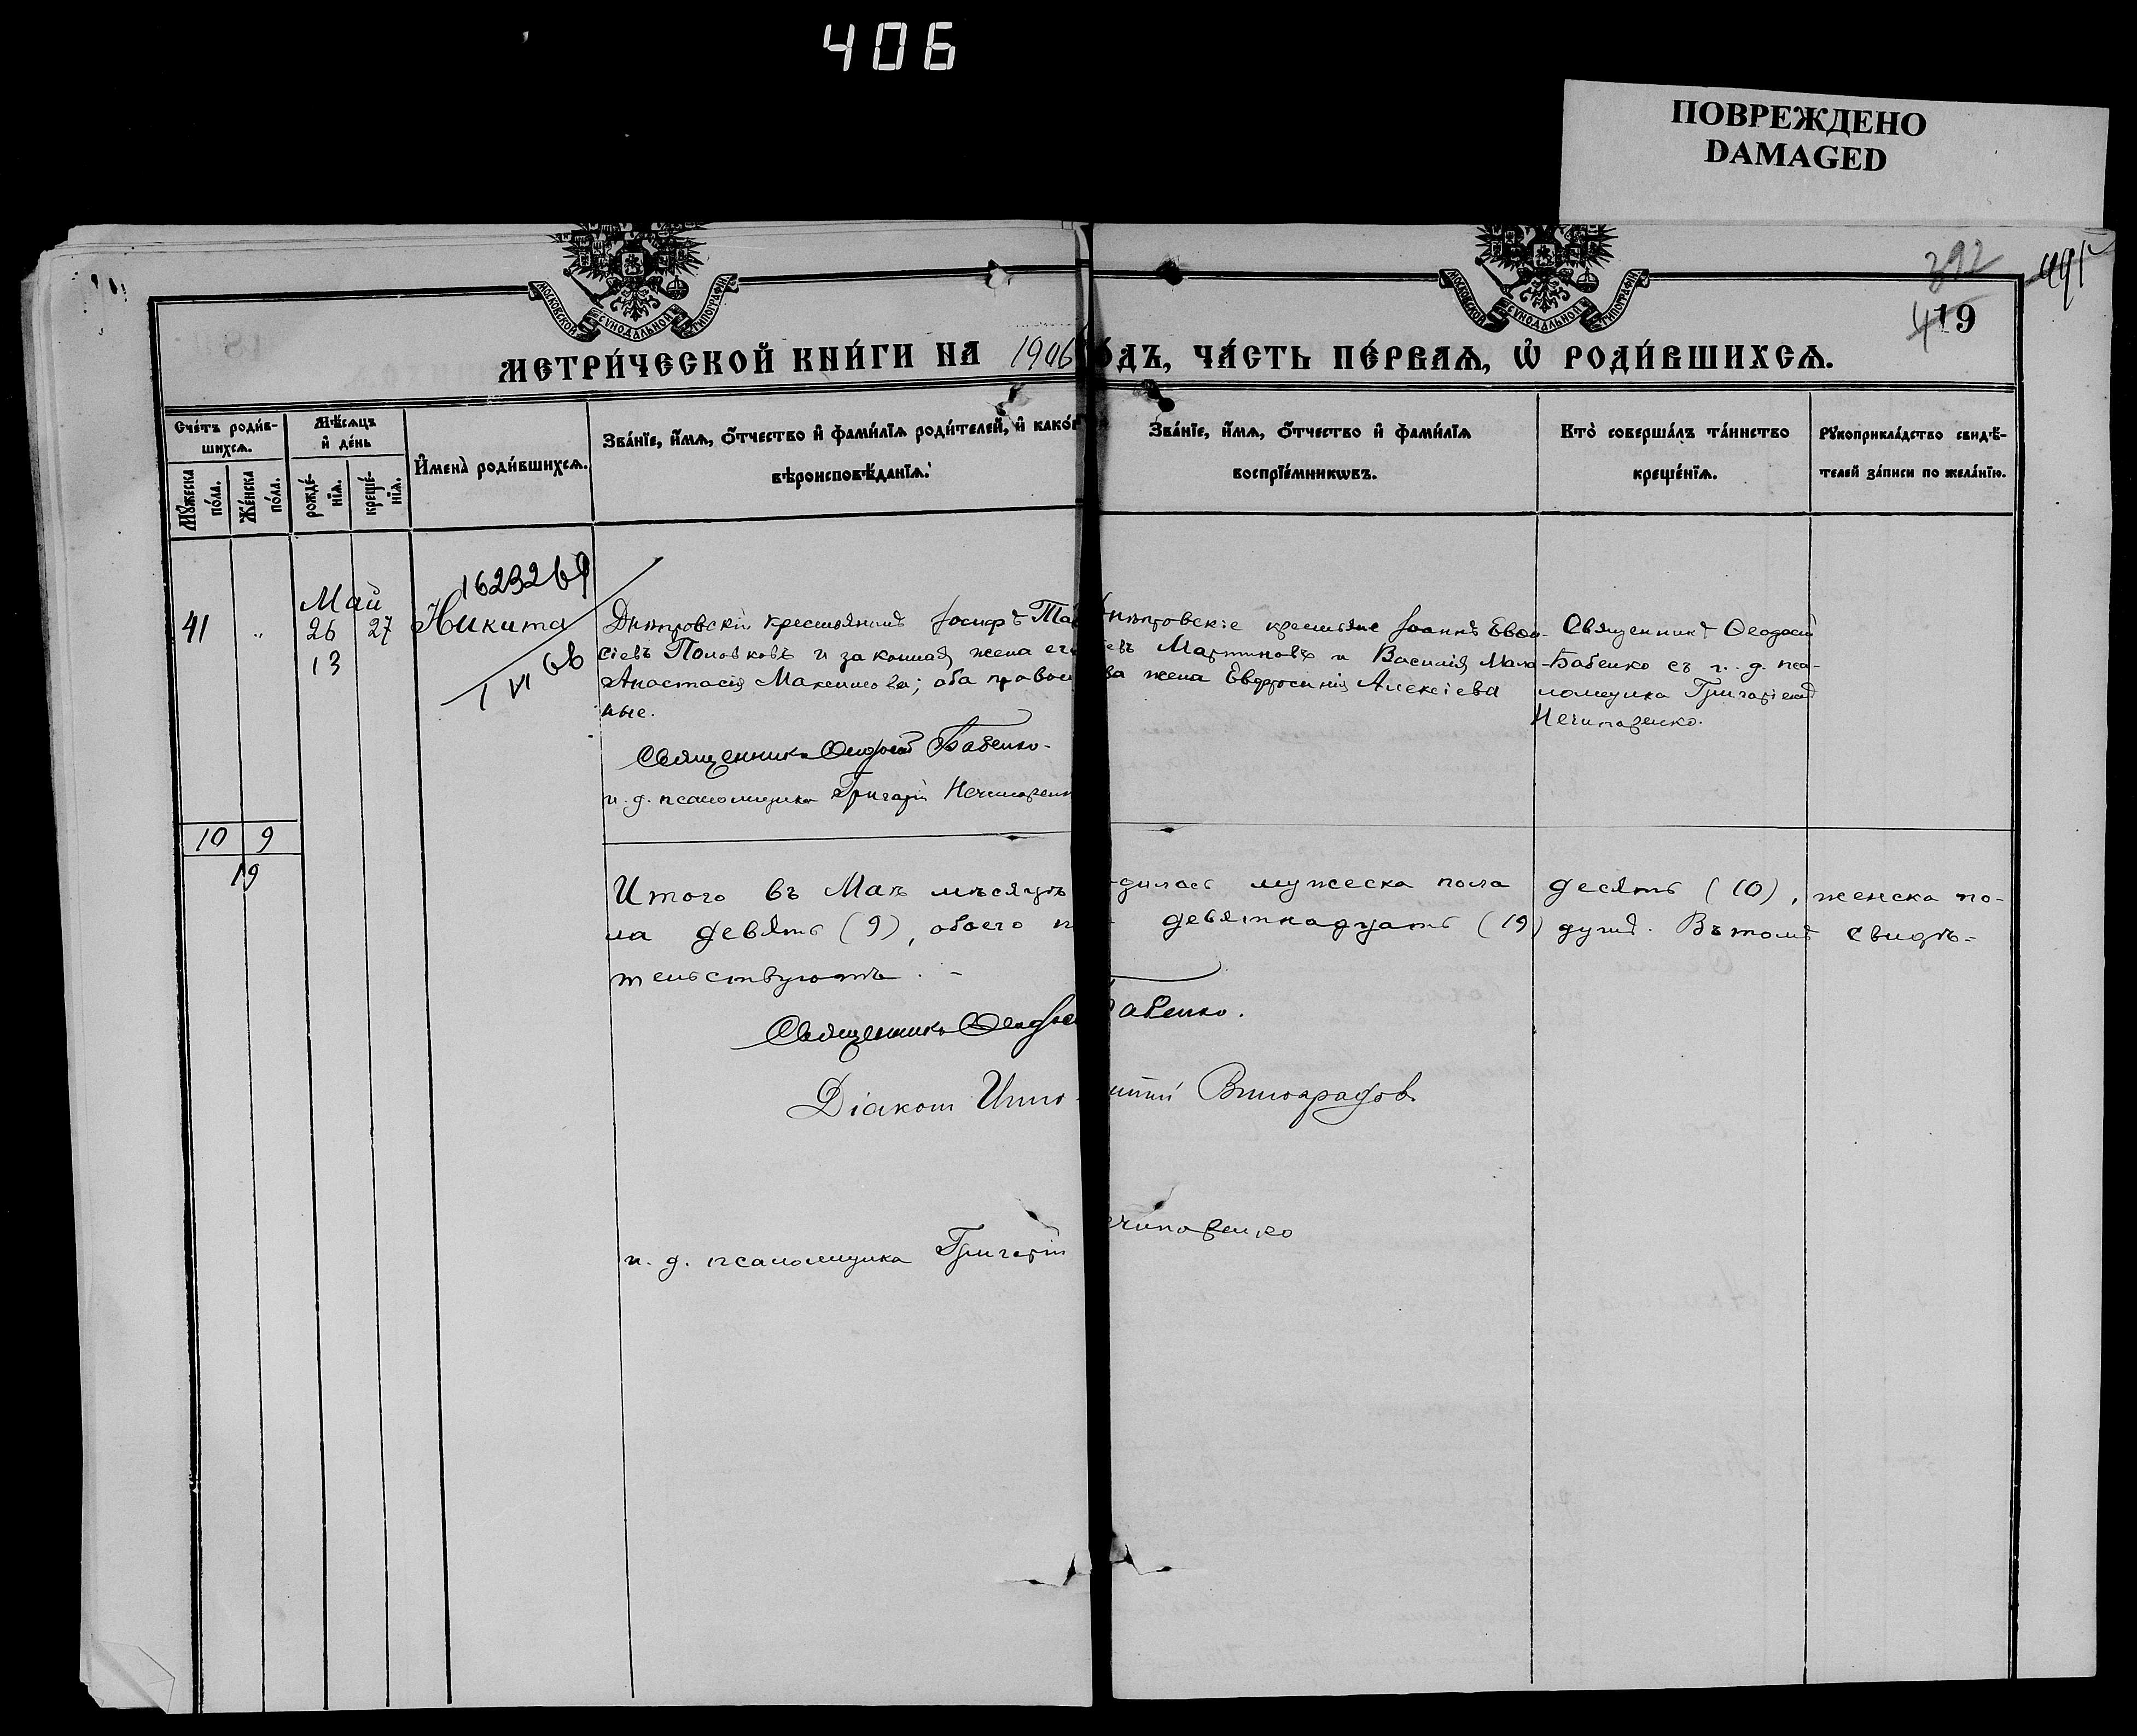 406
ПОВРЕЖДЕНО
DAMAGED
МОСКОВСКОЙ СУНОДАЛЬНОЙ ТИПОГРАФІИ
МОСКОВСКОЙ СУНОДАЛЬНОЙ ТИПОГРАФІИ
392
419
МЕТРИ́ЧЕСКОЙ КНИ́ГИ НА 1906 ОДЪ, ЧА́СТЬ ПЕ́РВАѦ, Ѡ҆ РОДИ́ВШИХСѦ.
Сче́тъ роди́в-
шихсѧ.
Мѣ́сѧцъ
и҆ де́нь
Мꙋ́жеска
по́ла.
Же́нска
по́ла.
рожде́-
нїѧ.
креще́-
нїѧ.
И҆мена̀ роди́вшихсѧ.
Зва́нїе, и҆́мѧ, ѻ҆́тчество и҆ фами́лїѧ роди́телей, и҆ како́г
вѣроисповѣ́данїѧ.
Зва́нїе, и҆́мѧ, ѻ҆́тчество и҆ фами́лїѧ
воспрїе́мникѡвъ.
Кто̀ соверша́лъ та́инство
креще́нїѧ.
Рꙋкоприкла́дство свидѣ́-
телей за́писи по жела́нїю.
1623269
Май
41 " 26 27 Никита
13
1 VI 66
Днѣпровскій крестьянинъ Іосифъ
сіевъ Половковъ и законная жена его
Анастасія Максимова; оба правос
ные.
Священникъ Ѳеодосій Бабенко.
и. д. псаломщика Григорій Нечипоренк
нѣпровскіе крестьяне Іоаннъ Евдо-
евъ Мартиновъ и Василія Мала-
ва жена Евфросинія Алексіева
Священникъ Ѳеодосій
Бабенко съ и. д. пса-
ломщика Григоріемъ
Нечипоренко.
10 9
19
Итого въ Маѣ мѣсяцѣ дилось мужеска пола десять (10), женска по-
ла девять (9), обоего п девятнадцать (19) душъ. Въ томъ свидѣ-
тельствуютъ.
Священникъ Ѳеодос абенко.
Діаконъ Виноградов
и. д. псаломщика Григорій ечипоренко